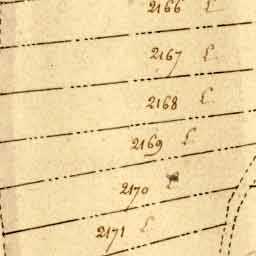 2166 L
2167 L
2168 L
2169 L
2170 L
2171 L